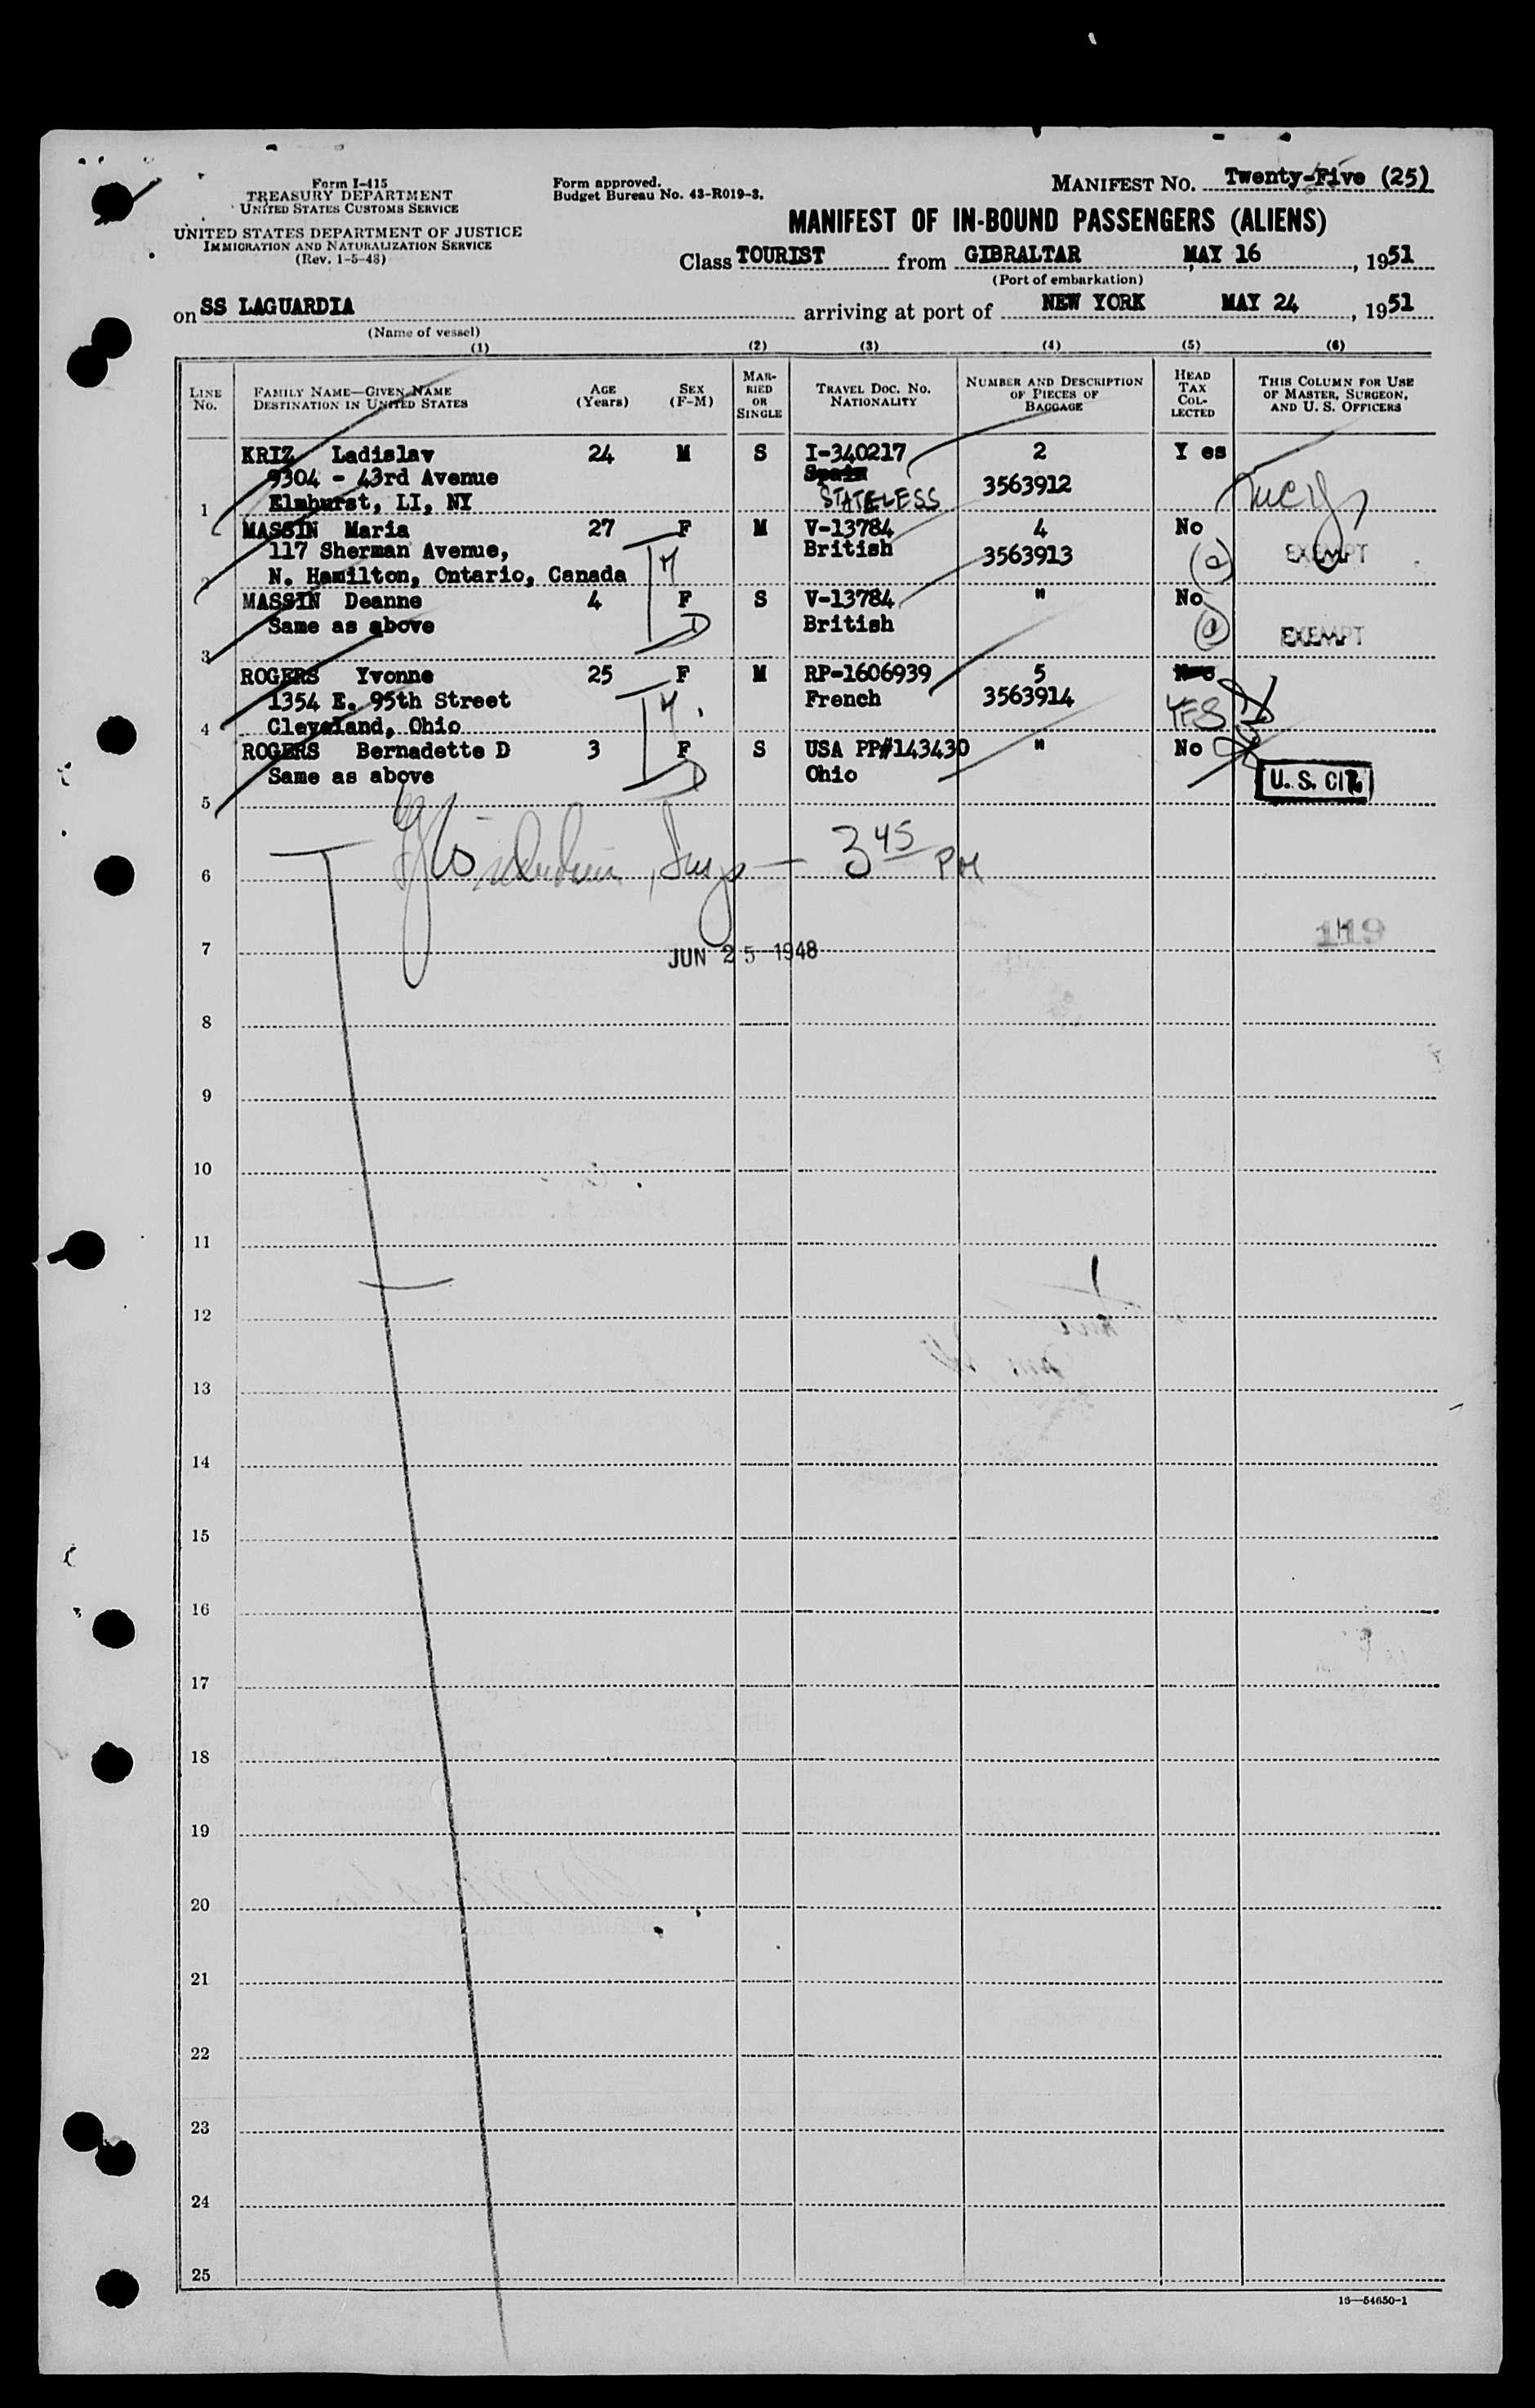 Form I-415
TREASURY DEPARTMENT
UNITED STATES CUSTOMS SERVICE
UNITED STATES DEPARTMENT OF JUSTICE
IMMIGRATION AND NATURALIZATION SERVICE
(Rev. 1-5-48)
Form approved.
Budget Bureau No. 43-R019-3.
MANIFEST NO. Twenty-Five (25)
MANIFEST OF IN-BOUND PASSENGERS (ALIENS)
Class TOURIST from GIBRALTAR, MAY 16, 1951
(Port of embarkation)
on SS LAGUARDIA arriving at port of NEW YORK MAY 24, 1951
(Name of vessel)
(1) (2) (3) (4) (5) (6)
LINE No. FAMILY NAME—GIVEN NAME DESTINATION IN UNITED STATES AGE (Years) SEX (F-M) MARRIED OR SINGLE TRAVEL DOC. NO. NATIONALITY NUMBER AND DESCRIPTION OF PIECES OF BAGGAGE HEAD TAX COLLECTED THIS COLUMN FOR USE OF MASTER, SURGEON, AND U. S. OFFICERS
KRIZ Ladislav 24 M S I-340217 2 Y es
9304 - 43rd Avenue Spain 3563912
1 Elmhurst, LI, NY STATELESS
MASSIN Maria 27 F M V-13784 4 No
117 Sherman Avenue, British 3563913 EXEMPT
2 N. Hamilton, Ontario, Canada
MASSIN Deanne 4 F S V-13784 " No
Same as above British EXEMPT
3
ROGERS Yvonne 25 F M RP-1606939 5
1354 E. 95th Street French 3563914 YES
4 Cleveland, Ohio
ROGERS Bernadette D 3 F S USA PP#143430 " No
Same as above Ohio U. S. CIT.
5
6 3 45 PM
7 JUN 25 1948 119
8
9
10
11
12
13
14
15
16
17
18
19
20
21
22
23
24
25
16—54650-1